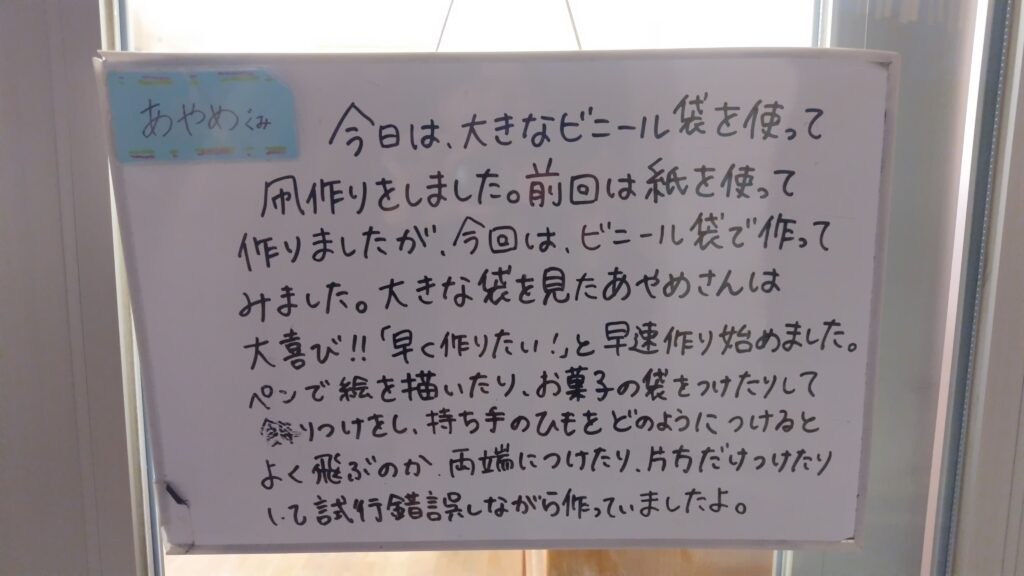 あやめぐみ
今日は、大きなビニール袋を使って
凧作りをしました。前回は紙を使って
作りましたが、今回は、ビニール袋で作って
みました。大きな袋を見たあやめさんは
大喜び!!「早く作りたい!」と早速作り始めました。
ペンで絵を描いたり、お菓子の袋をつけたりして
りつけをし、持ち手のひもをどのようにつけると
よく飛ぶのか、両端につけたり、片方だけつけたり
して試行錯誤しながら作っていましたよ。